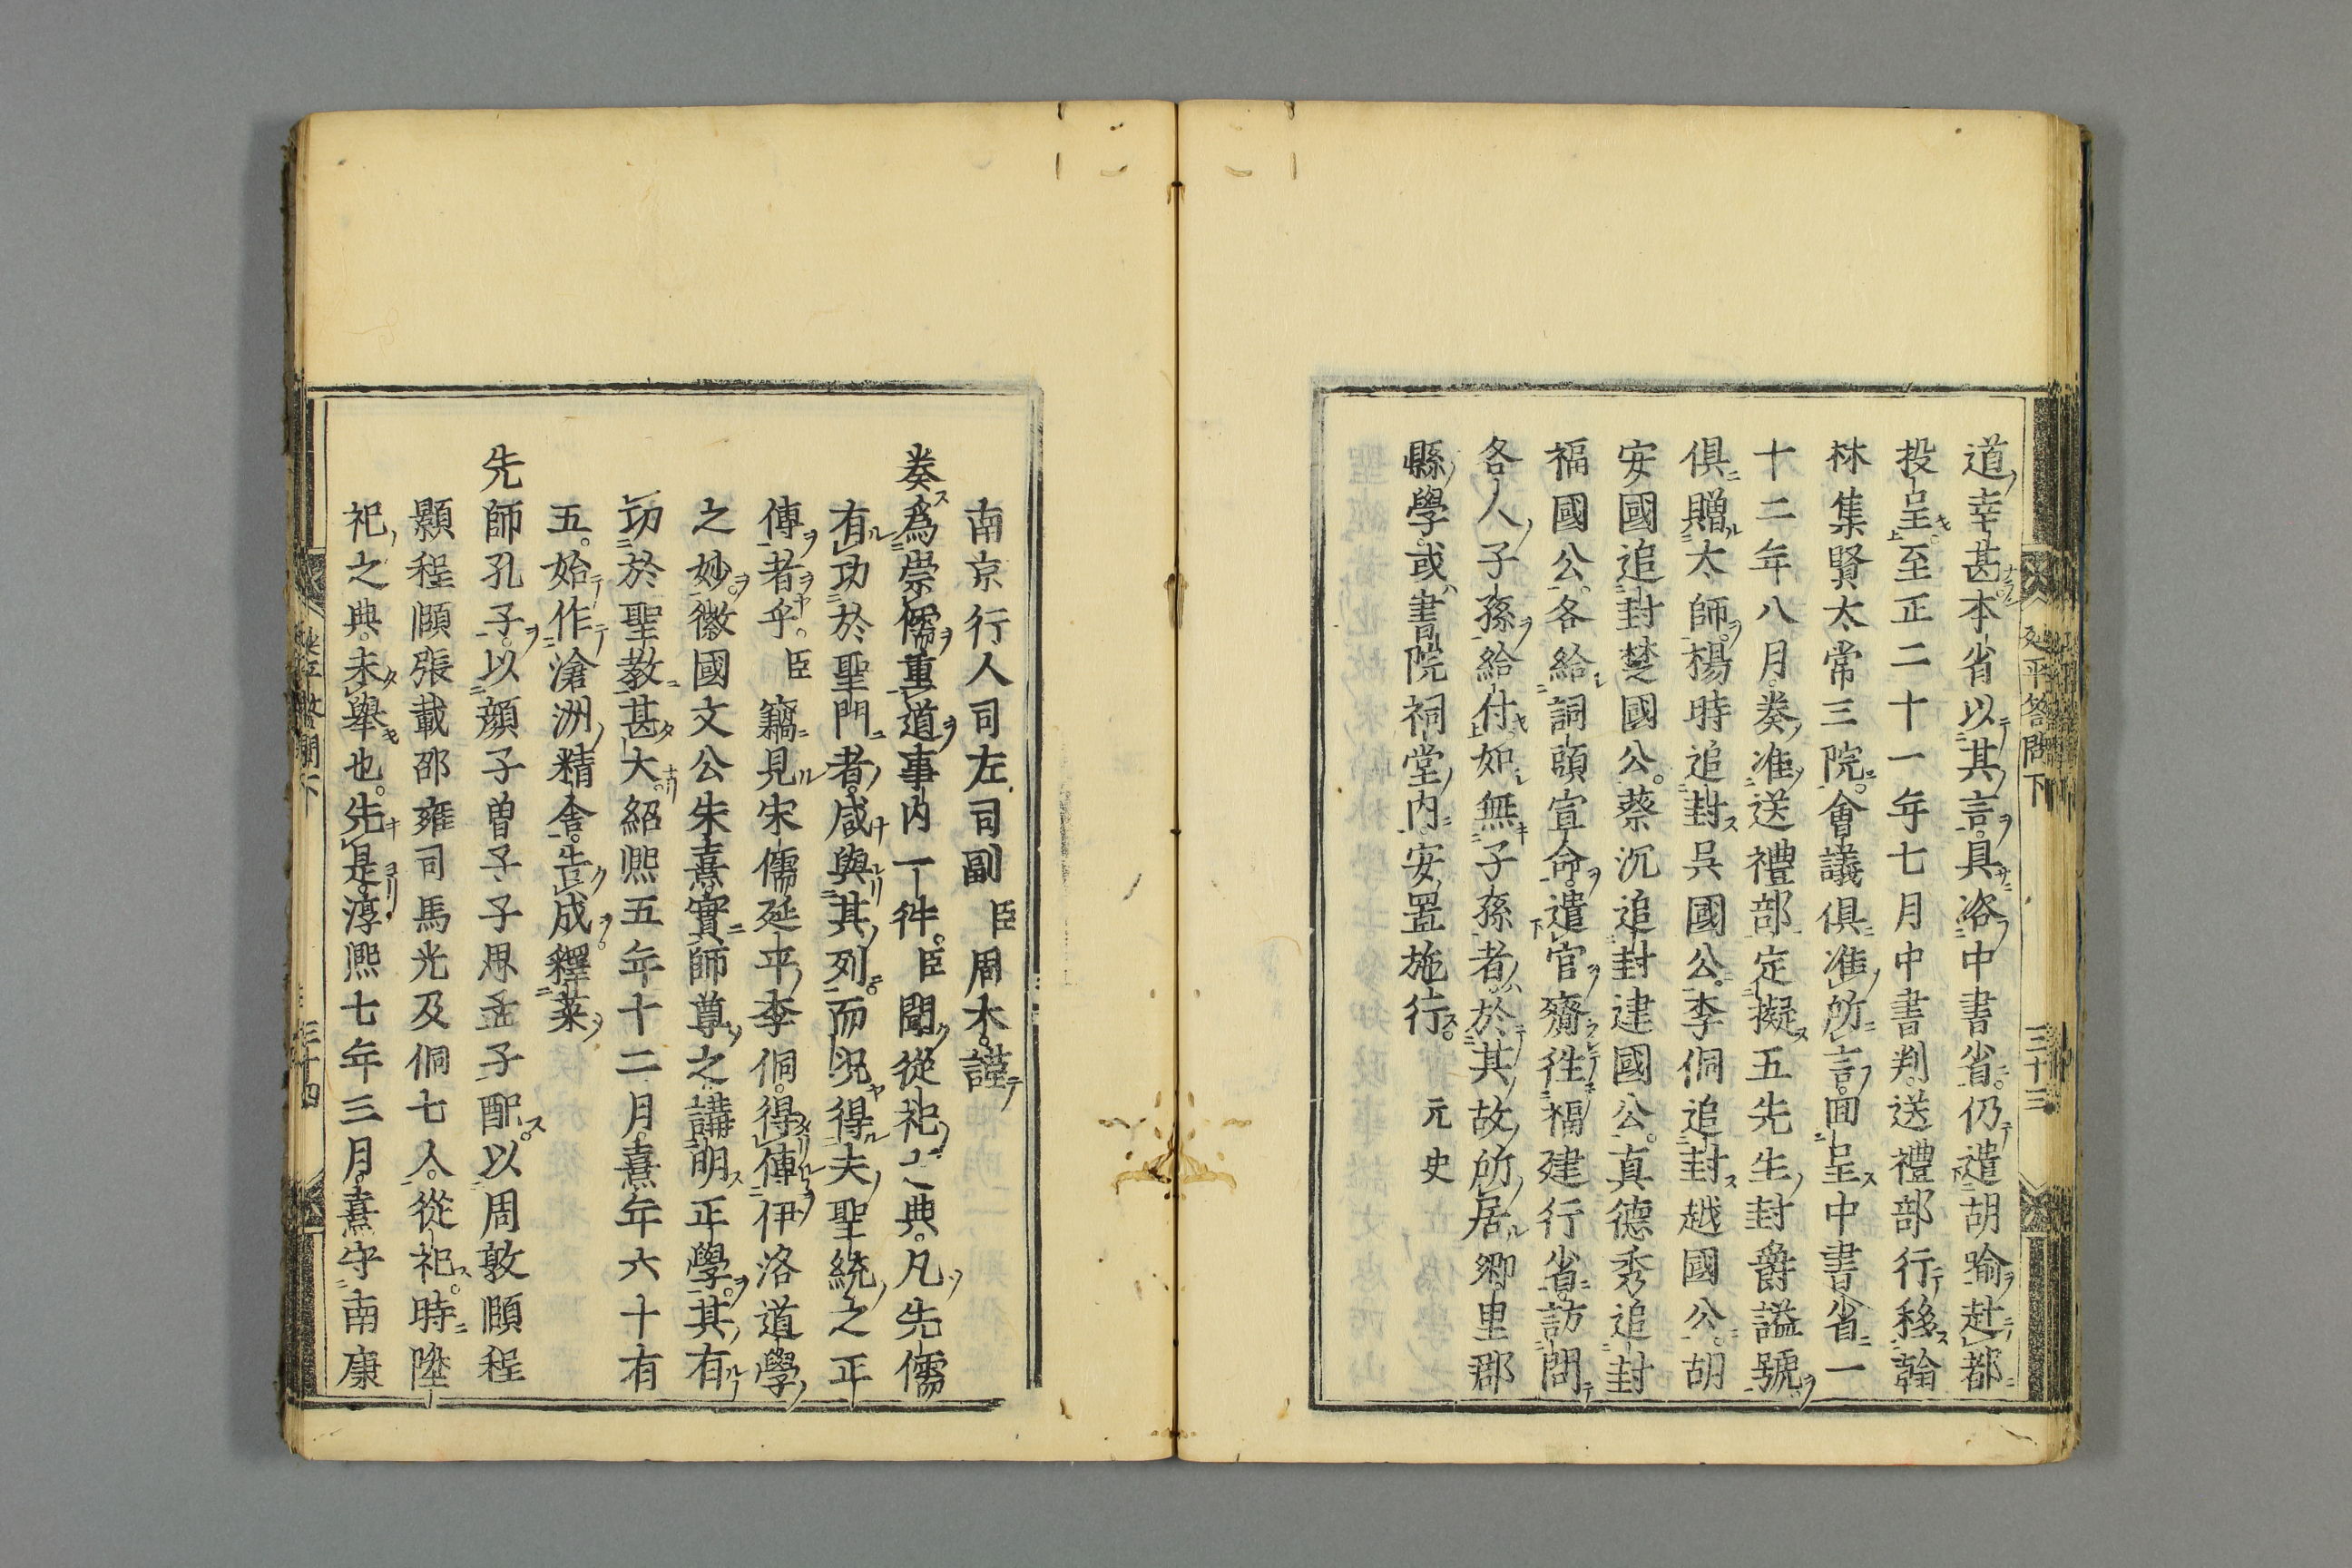 道幸甚本省以其言具咨中書省仍遣胡喻赴都
投呈至正二十一年七月中書判送禮部行移翰
林集賢太常三院會議俱准所言回呈中書省一
十二年八月奏准送禮部定擬五先生封爵謚號
俱贈太師楊時追封吳國公李侗追封越國公胡
安國追封楚國公蔡沉追封建國公真德秀追封
福國公各給詞頭宣命遣官齎徃福建行省訪問
各人子孫給付如無子孫者於其故所居鄉里郡
縣學或書院祠堂內安置施行 元史
延平答問下 三十三
南京行人司左司副臣周木謹
奏爲崇儒重道事內一件臣聞從祀之典凡先儒
有功於聖門者咸與其列而況得夫聖統之正
傳者乎臣竊見宋儒延平李侗得傳伊洛道學
之妙徽國文公朱熹實師尊之講明正學其有
功於聖教甚大紹熈五年十二月熹年六十有
五始作滄洲精舍告成釋菜
先師孔子以顏子曾子子思孟子配以周敦頤程
顥程頤張載邵雍司馬光及侗七人從祀時陞
祀之典未舉也先是淳熈七年三月熹守南康
三十四